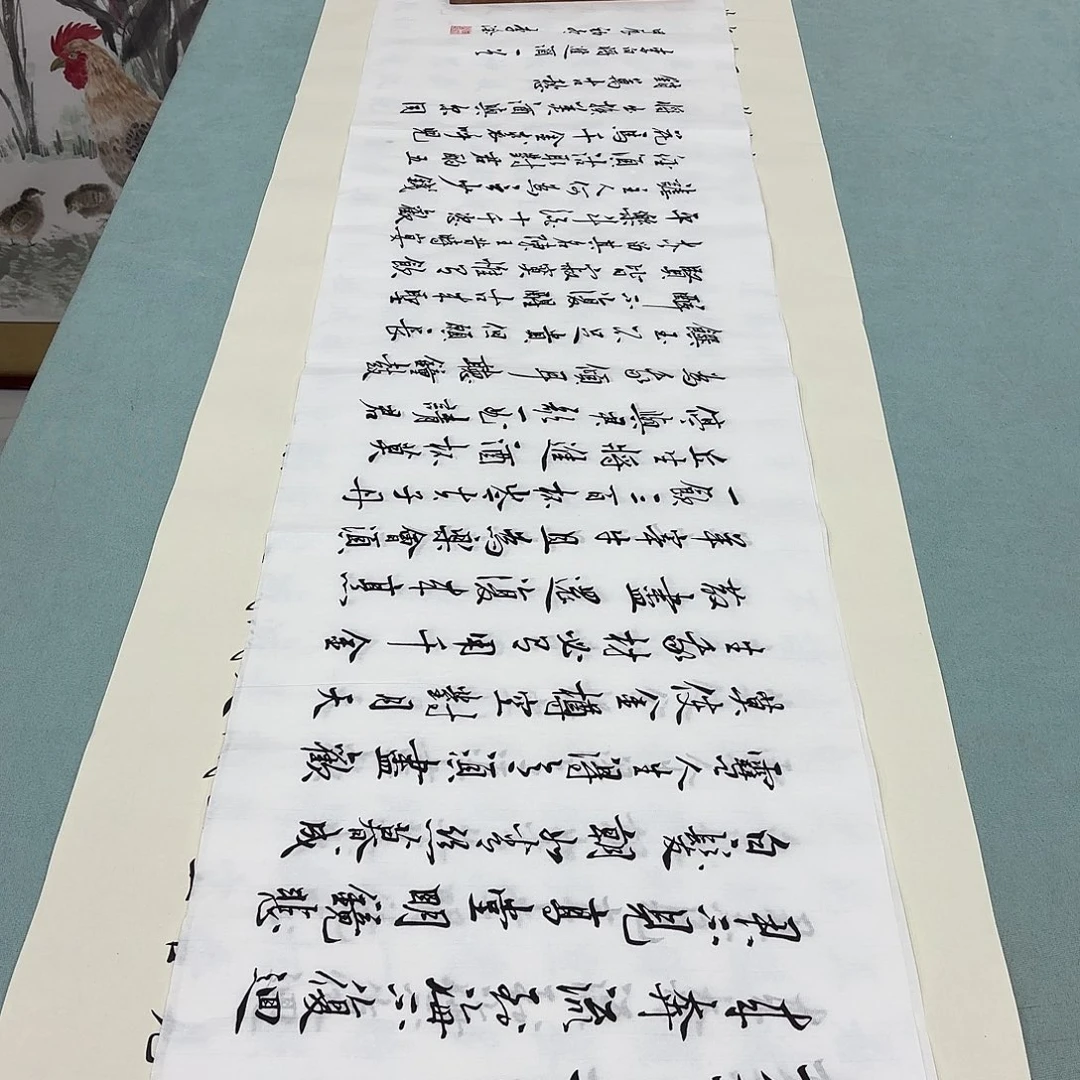 來奔流到海不復迴
君不見高堂明鏡悲
白髮朝如青絲暮成
雪人生得意須盡歡
莫使金樽空對月天
生我材必有用千金
散盡還復來烹
羊宰牛且為樂會須
一飲三百杯岑夫子丹
丘生將進酒杯莫
停與君歌一曲請君
為我傾耳聽鐘鼓
饌玉不足貴但願長
醉不復醒古來聖
賢皆寂寞惟有飲
者留其名陳王昔時宴
平樂斗酒十千恣歡
謔主人何為言少錢
徑須沽取對君酌五
花馬千金裘呼兒
將出換美酒與爾同
銷萬古愁
李白將進酒一首